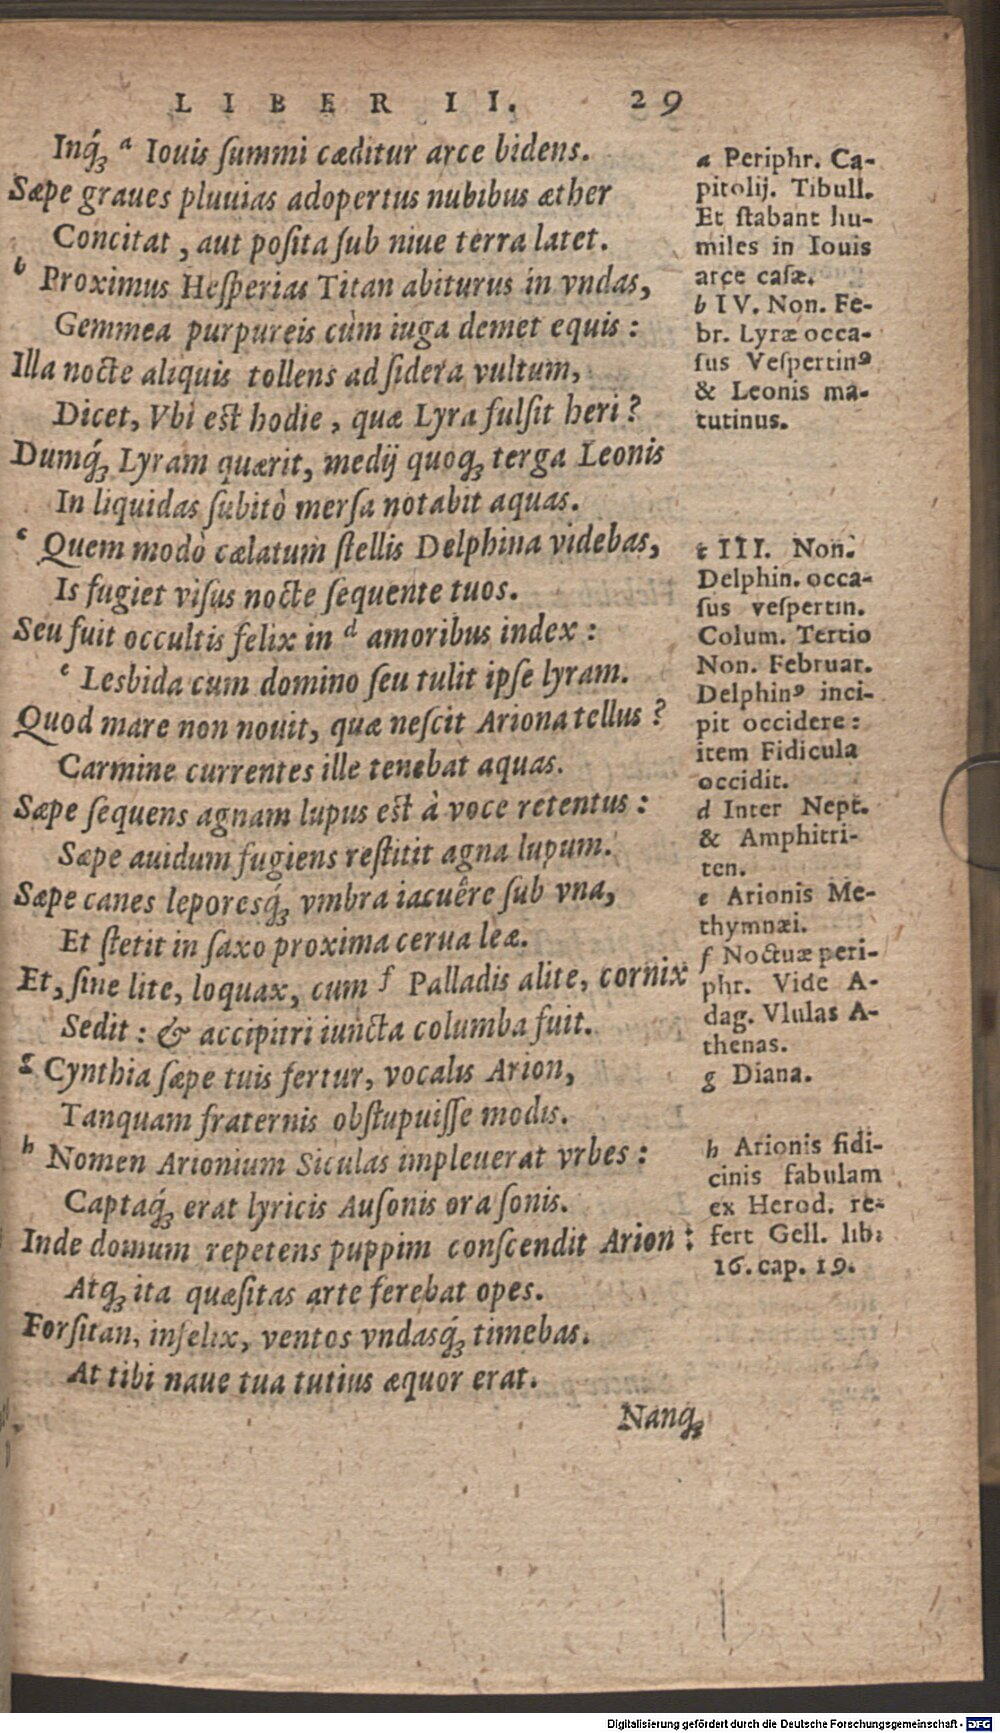 LIBER II. 29
Inq́ꝫ a Iouis ſummi cæditur arce bidens.
Sæpe graues pluuias adopertus nubibus æther
Concitat, aut poſita ſub niue terra latet.
b Proximus Heſperias Titan abiturus in vndas,
Gemmea purpureis cùm iuga demet equis:
Illa nocte aliquis tollens ad ſidera vultum,
Dicet, Vbi est hodie, quæ Lyra fulſit heri?
Dumq́ꝫ Lyram quærit, medij quoqꝫ terga Leonis
In liquidas ſubitò merſa notabit aquas.
c Quem modò cælatum ſtellis Delphina videbas,
Is fugiet viſus nocte ſequente tuos.
Seu fuit occultis felix in d amoribus index:
e Lesbida cum domino ſeu tulit ipſe lyram.
Quod mare non nouit, quæ neſcit Ariona tellus?
Carmine currentes ille tenebat aquas.
Sæpe ſequens agnam lupus est à voce retentus:
Sæpe auidum fugiens reſtitit agna lupum.
Sæpe canes leporesq́ꝫ vmbra iacuêre ſub vna,
Et ſtetit in ſaxo proxima cerua leæ.
Et, ſine lite, loquax, cum f Palladis alite, cornix
Sedit: & accipitri iuncta columba fuit.
g Cynthia ſæpe tuis fertur, vocalis Arion,
Tanquam fraternis obſtupuiſſe modis.
h Nomen Arionium Siculas impleuerat vrbes:
Captaq́ꝫ erat lyricis Auſonis ora ſonis.
Inde domum repetens puppim conſcendit Arion:
Atqꝫ ita quæſitas arte ferebat opes.
Forſitan, infelix, ventos vndasq́ꝫ timebas.
At tibi naue tua tutius æquor erat.
Nanqꝫ
a Periphr. Ca-
pitolij. Tibull.
Et ſtabant hu-
miles in Iouis
arce caſæ.
b IV. Non. Fe-
br. Lyræ occa-
ſus Veſpertinꝰ
& Leonis ma-
tutinus.
c III. Non.
Delphin. occa-
ſus veſpertin.
Colum. Tertio
Non. Februar.
Delphinꝰ inci-
pit occidere:
item Fidicula
occidit.
d Inter Nept.
& Amphitri-
ten.
e Arionis Me-
thymnæi.
f Noctuæ peri-
phr. Vide A-
dag. Vlulas A-
thenas.
g Diana.
h Arionis fidi-
cinis fabulam
ex Herod. re-
fert Gell. lib.
16. cap. 19.
Digitalisierung gefördert durch die Deutsche Forschungsgemeinschaft - DFG